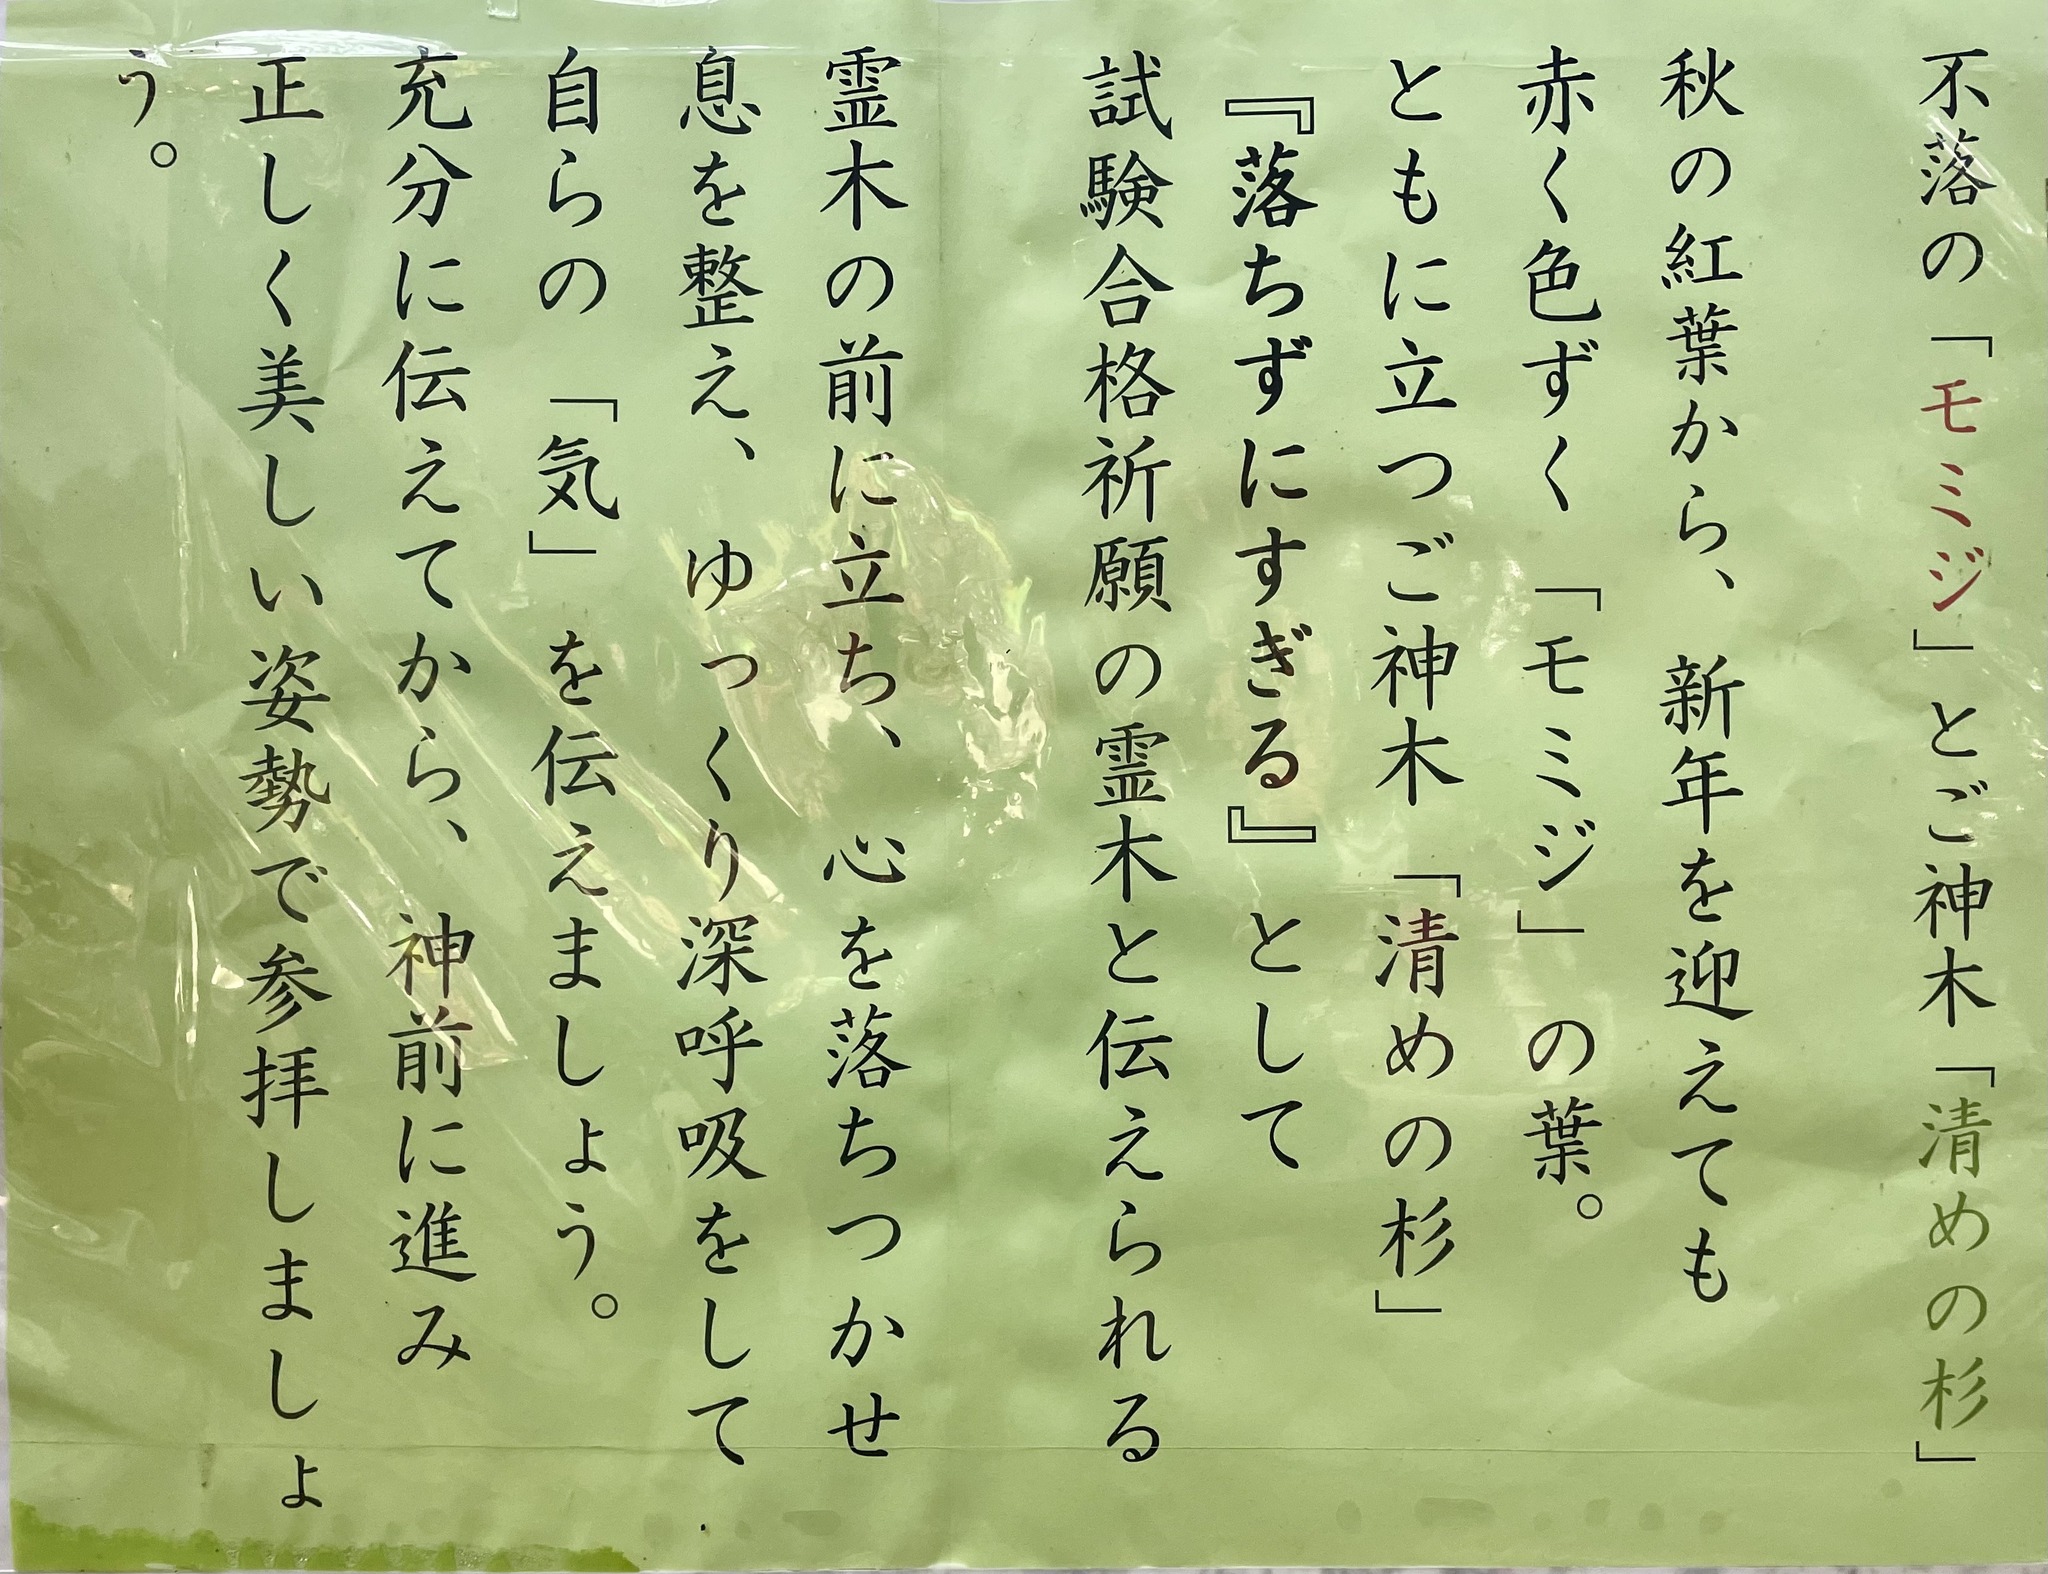 不落の「モミジ」とご神木「清めの杉」
秋の紅葉から、新年を迎えても
赤く色ずく「モミジ」の葉。
ともに立つご神木「清めの杉」
『落ちずにすぎる』として
試験合格祈願の霊木と伝えられる
霊木の前に立ち、心を落ちつかせ
息を整え、ゆっくり深呼吸をして
自らの「気」を伝えましょう。
充分に伝えてから、神前に進み
正しく美しい姿勢で参拝しましょ
う。